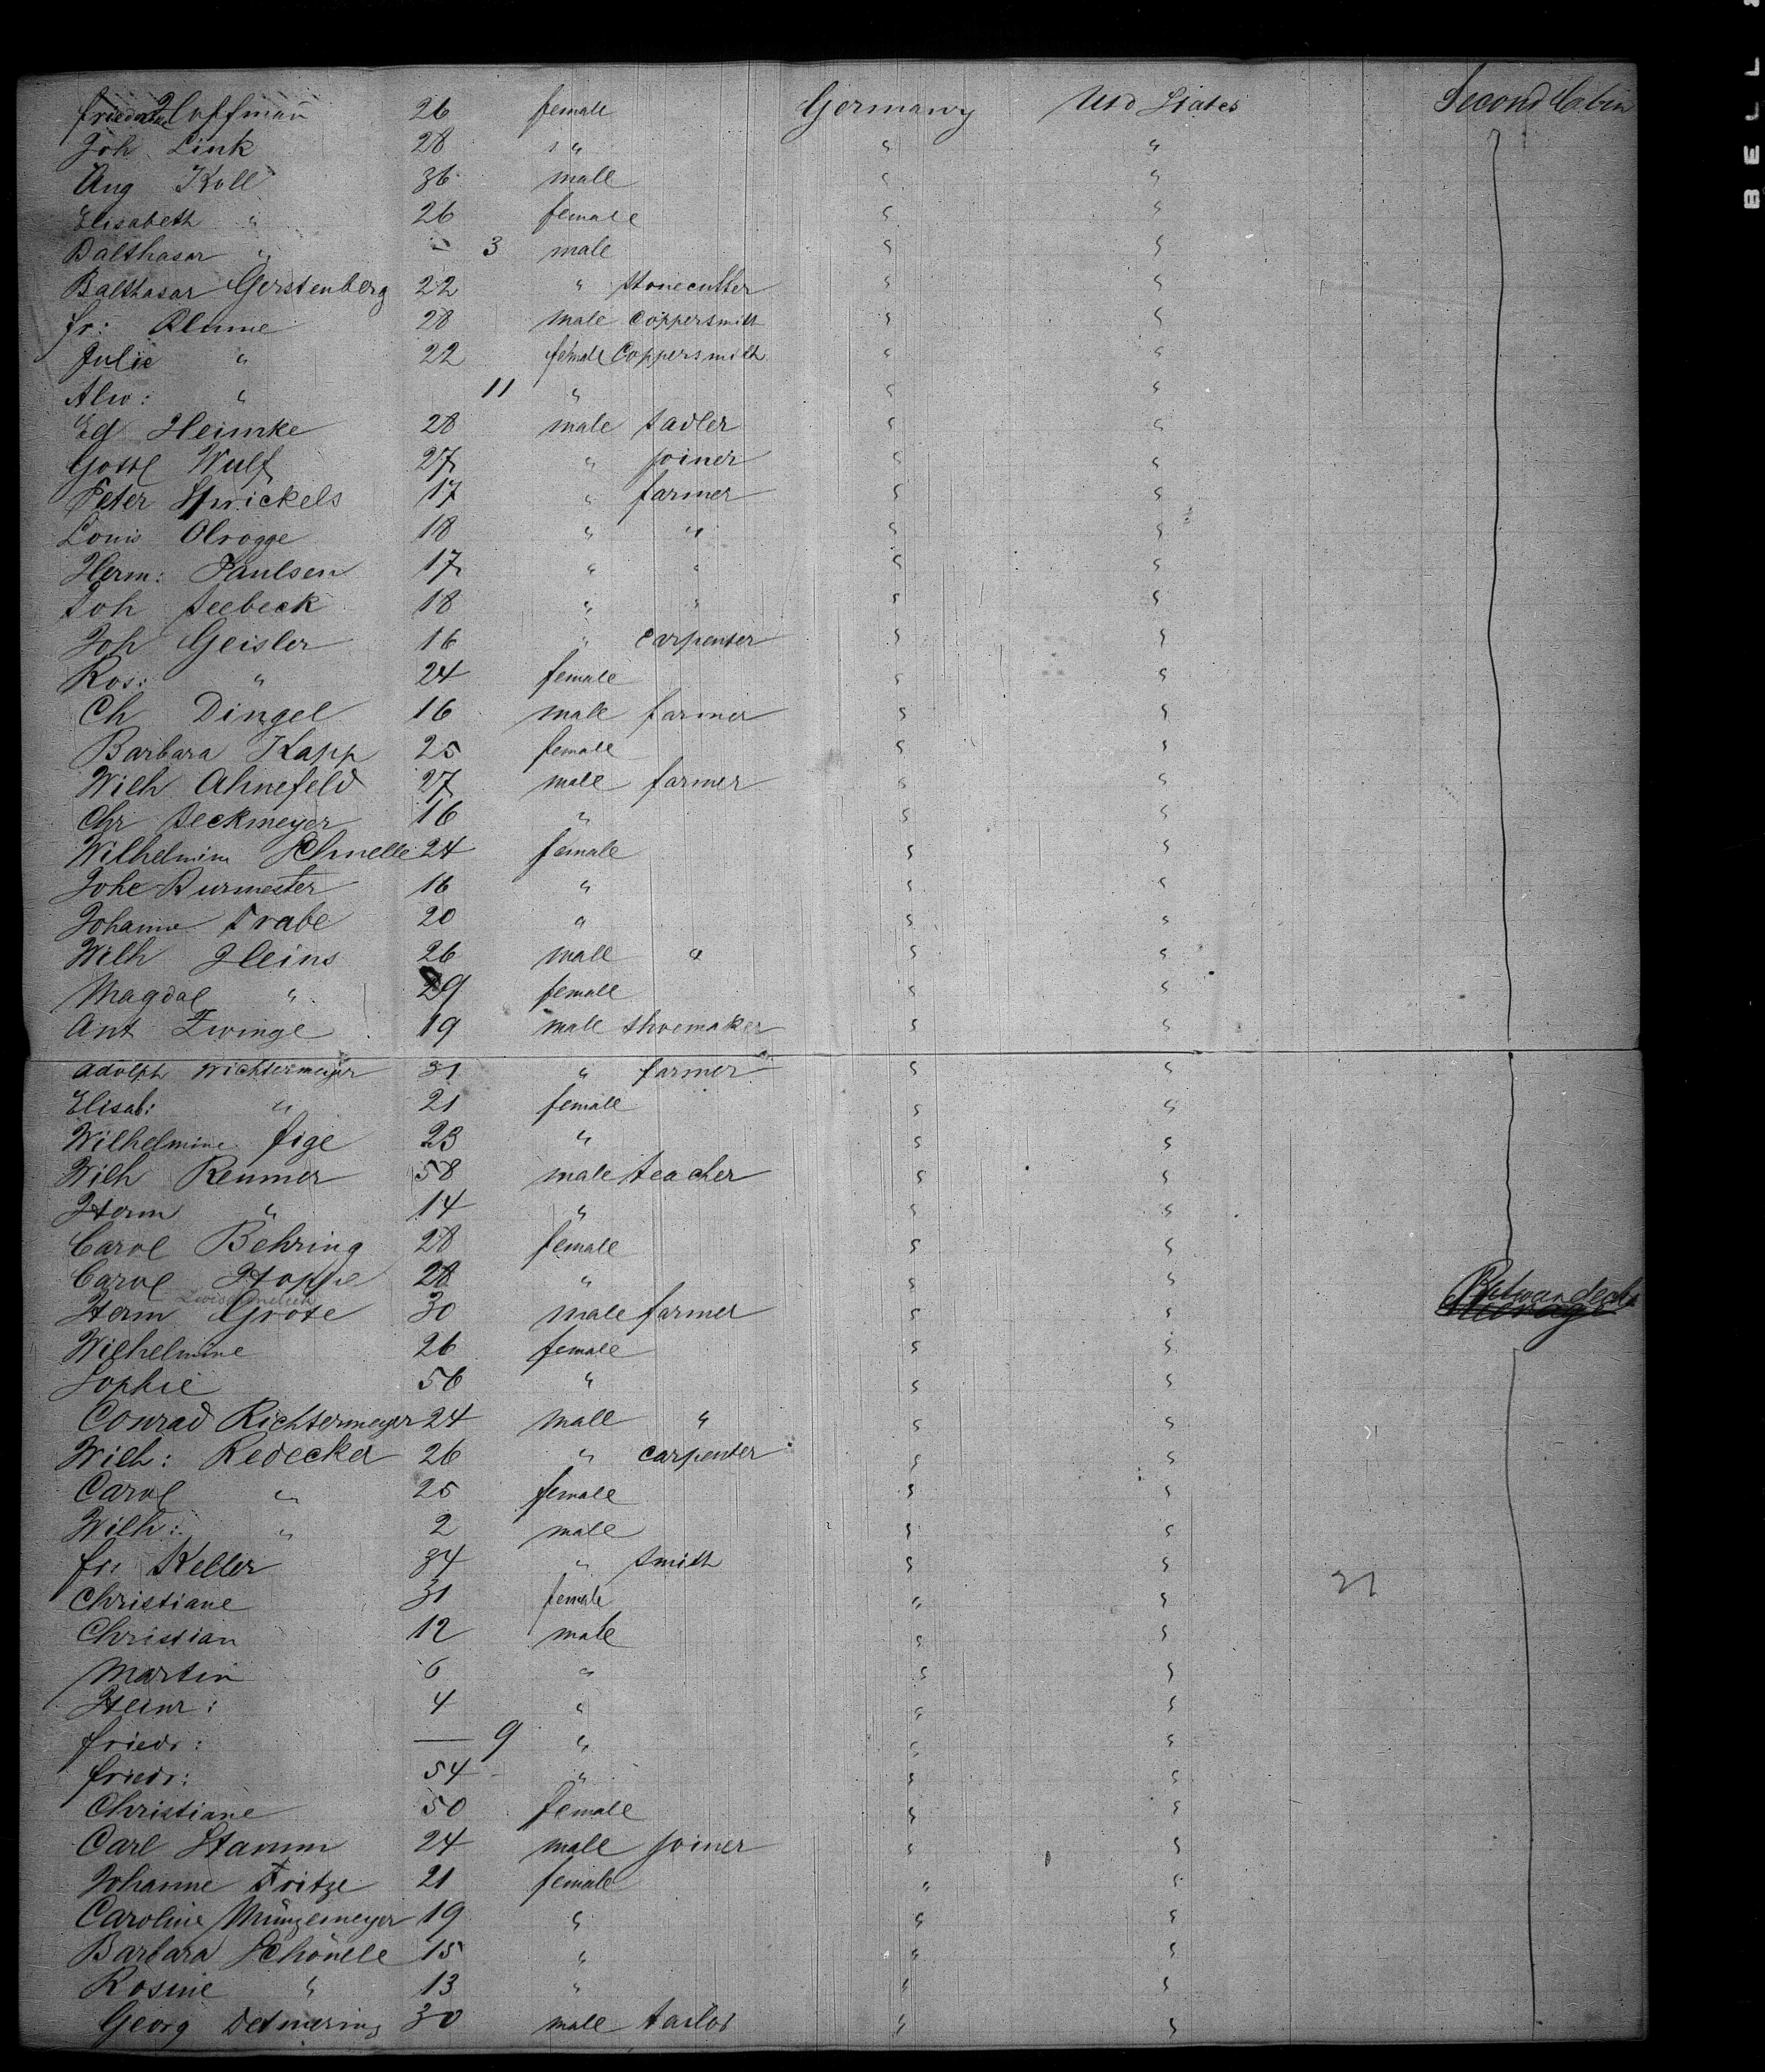 Hoffman 26 female Germany Utd States Second Cabin
Joh Link 28 " " "
Aug Koll 36 male " "
Elisabeth " 26 female " "
Balthasar " - 3 male " "
Balthasar Gerstenberg 22 " stonecutter " "
fr: Blume 28 male Coppersmith " "
Julie " 22 female Coppersmith " "
Alw: " 11 " " "
Ed Heimke 28 male sadler " "
Gottl Wulf 27 " joiner " "
Peter 17 " farmer " "
Louis Olrogge 18 " " " "
Herm: Paulsen 17 " " " "
Joh Seebeck 18 " " " "
Joh Geisler 16 " carpenter " "
Ros: " 24 female " "
Ch Dingel 16 male farmer " "
Barbara Kapp 25 female " "
Wilh Ahnefeld 27 male farmer " "
Chr Seckmeyer 16 " " "
Wilhelmine Schnelle 24 female " "
Johe Burmester 16 " " "
Johanne Trabe 20 " " "
Wilh Heins 26 male " " "
Magdal " 29 female " "
Ant Zwinge 19 male shoemaker " "
Adolph Wichtermeyer 31 " farmer " "
Elisab: " 21 female " "
Wilhelmine fige 23 " " "
Wilh Remmer 58 male teacher " "
Herm " 14 " " "
Carol Behring 28 female " "
Carol Hoppe 28 " " "
Zwischendeck
Herm Grote 30 male farmer " " Betwendeck
Wilhelmine 26 female " "
Sophie 56 " " "
Conrad Richtermeyer 24 male " " "
Wilh: Redecker 26 " carpenter " "
Carol " 25 female " "
Wilh: " 2 male " "
fr: Keller 34 " smith " "
Christiane 31 female " "
Christian 12 male " "
Martin 6 " " "
Heinr: 4 " " "
friedr: — 9 " " "
friedr: 54 " " "
Christiane 50 female " "
Carl Stamm 24 male joiner " "
Johanne Fritze 21 female " "
Caroline Münzemeyer 19 " " "
Barbara Schönele 15 " " "
Rosine " 13 " " "
Georg Detmering 30 male tailor " "
BELL